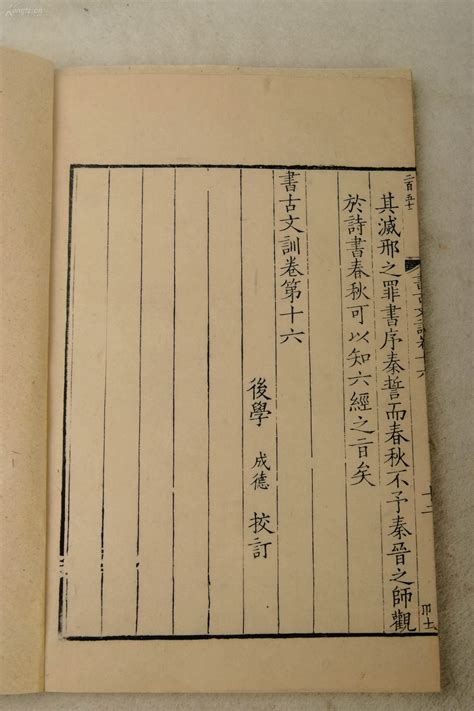 二百五十
書古文訓卷十六
其滅邢之罪書序秦誓而春秋不予秦晉之師觀
於詩書春秋可以知六經之旨矣
書古文訓卷第十六
後學 成德 挍訂